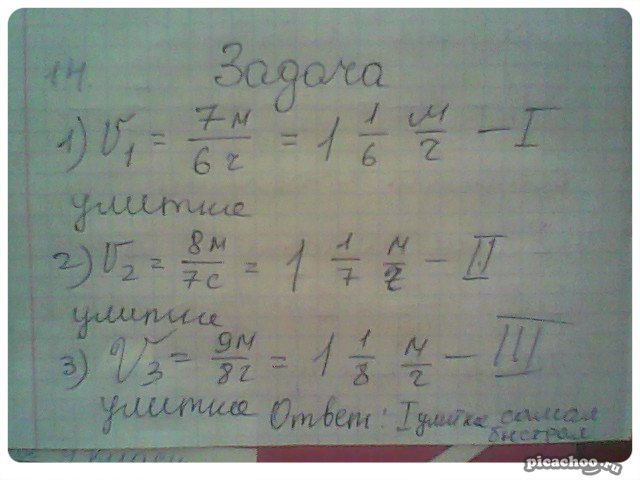 14.
Задача
1) V₁ = 7м/6ч = 1 1/6 м/ч – I
улитка
2) V₂ = 8м/7с = 1 1/7 м/ч – II
улитка
3) V₃ = 9м/8ч = 1 1/8 м/ч – III
улитка Ответ: I улитка самая
быстрая
picachoo.ru